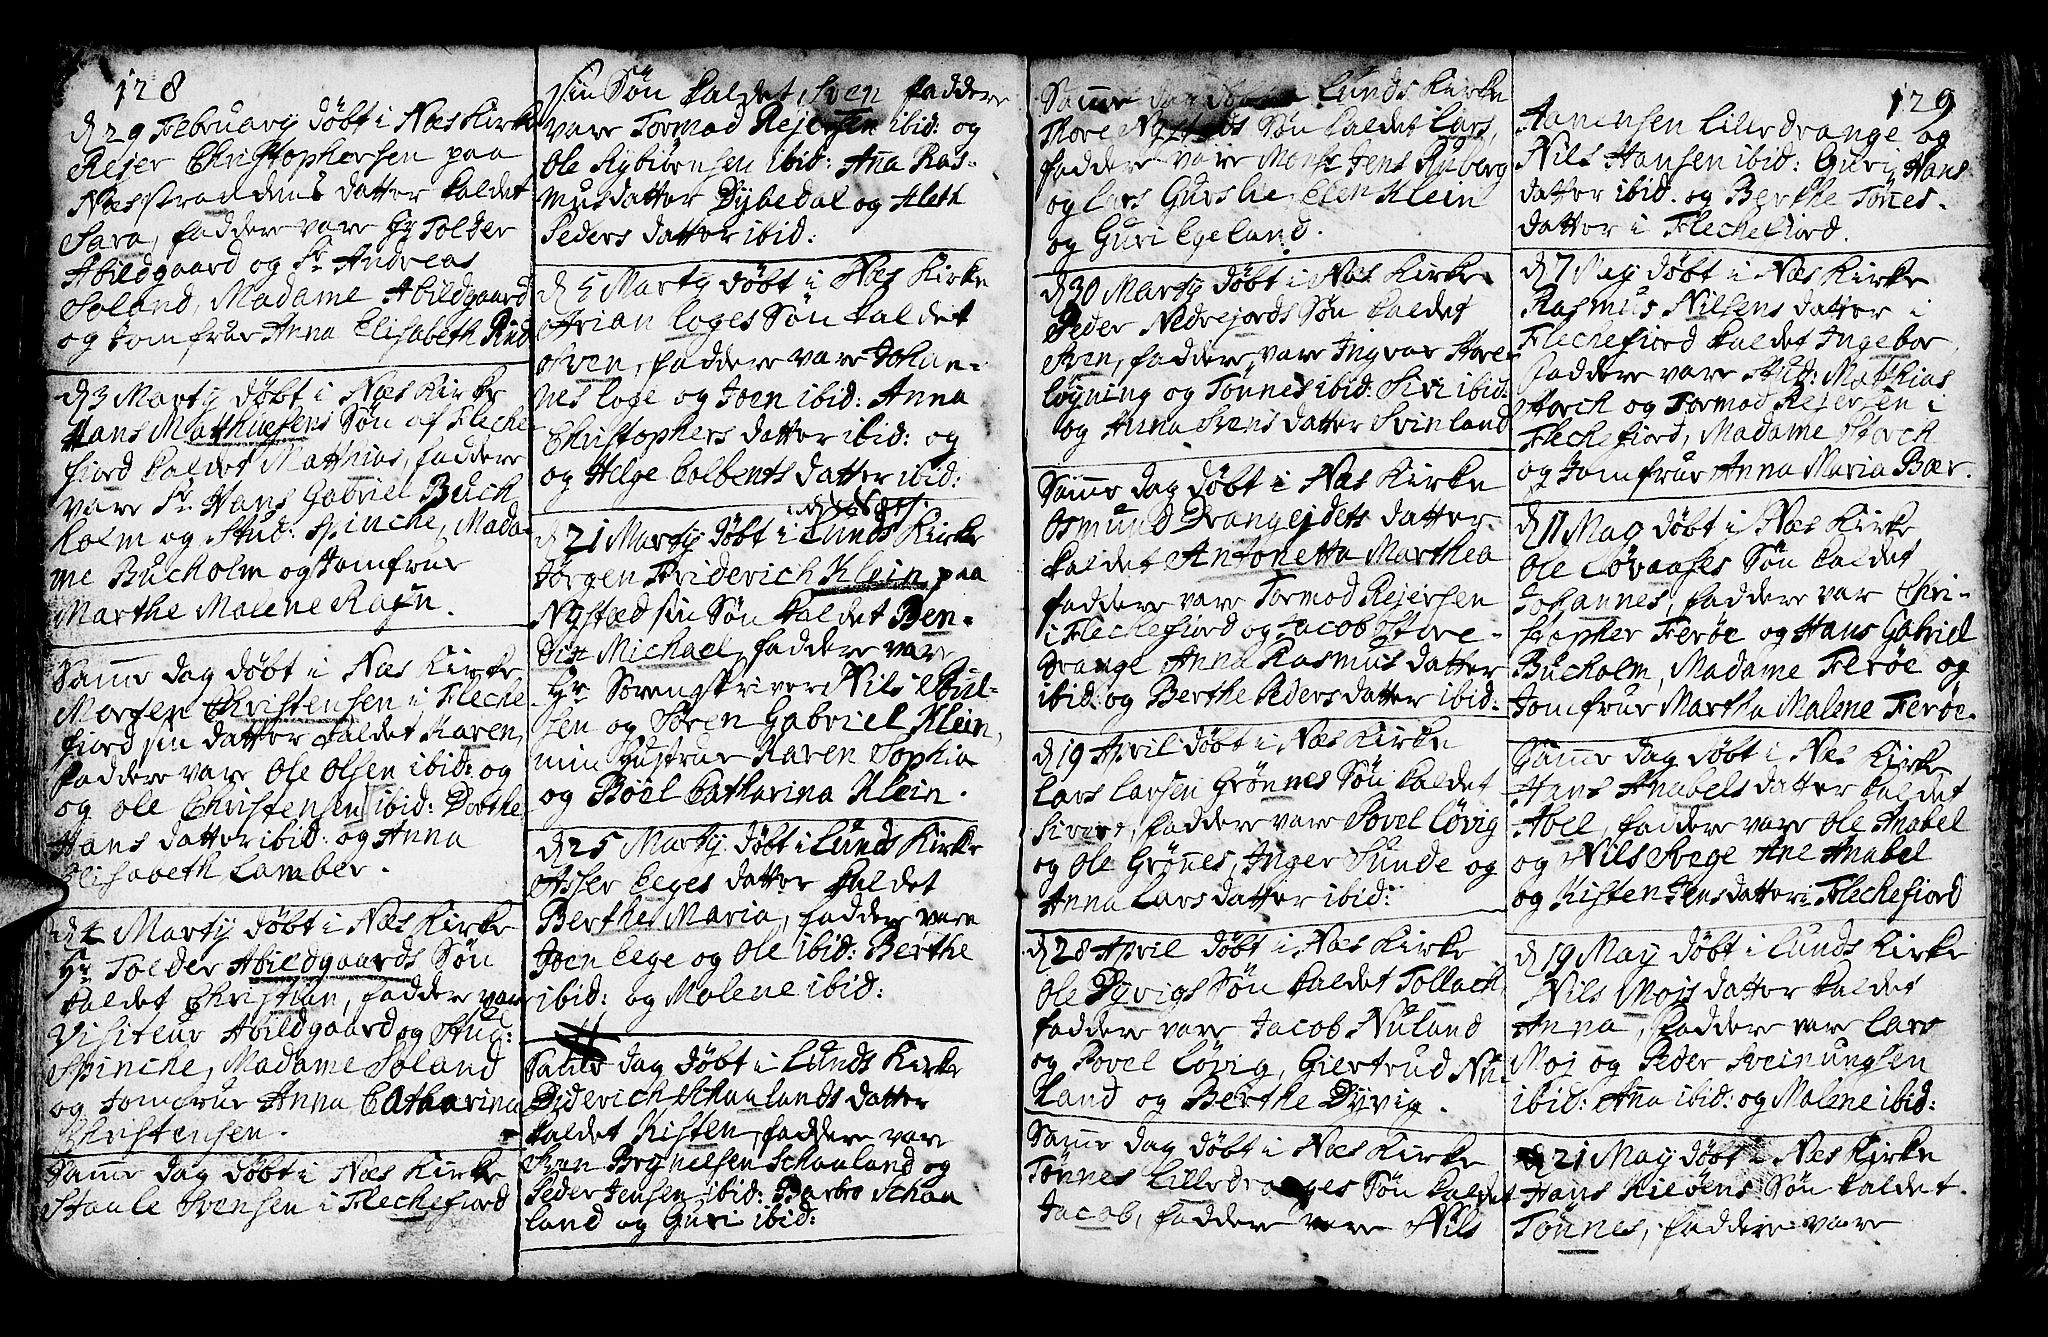 128
d 29 Februarij döbt i Næs Kirke
Rejer Christophersen paa
Næsstrandens datter kaldet
Sara, faddere vare Hr Tolder
Abildgaard og Sr Andreas
Soland, Madame Abildgaard
og Jomfrue Anna Elisabeth Rüd
d 3 Martij döbt i Næs Kirke
Hans Matthiesens Søn af Fleche
fiord kaldet Matthias, faddere
vare Sr Hans Gabriel Buck
holm og Stud: Spinche, Mada-
me Bucholm og Jomfrue
Marthe Malene Rafn.
Samme dag döbt i Næs Kirke
Morten Christensen i Fleche
fiord sin datter kaldet Karen,
faddere vare Ole Olsen ibid: og
og Ole Christensen ibid: Dorthe
Hans datter ibid: og Anna
Elisabeth Lamber.
d 4 Martij döbt i Næs Kirke
Hr Tolder Abildgaards Søn
kaldet Christian, faddere vare
Visiteur Abildgaard og Stud:
Spinche, Madame Soland
og Jomfrue Anna Catharina
Christensen.
Samme dag döbt i Næs Kirke
Staale Svensen i Flechefiord
sin Søn kaldet Sven faddere
vare Tormod Rejersen ibid: og
Ole Rybiörnsen ibid: Anna Ras-
musdatter Dybedal og Aleth
Peders datter ibid:
d 5 Martij döbt i Næs Kirke
Arian Loges Søn kaldet
Sven, faddere vare Johan-
nes Loge og Joen ibid: Anna
Christophers datter ibid: og
og Helge Colbents datter ibid:
d 21 Martij döbt i Lunds Kirke
Jørgen Friderich Klein paa
Nystæd sin Søn kaldet Ben-
dix Michael, faddere vare
Hr Sorenskriver Nils Poul-
sen og Sören Gabriel Klein,
min Hustrue Karen Sophia
og Böel Catharina Klein.
d 25 Martij döbt i Lunds Kirke
Asser Eeges datter kaldet
Berthe Maria, faddere vare
Joen Eege og Ole ibid: Berthe
ibid: og Malene ibid:
Samme dag döbt i Lunds Kirke
Diderich Schaalands datter
kaldet Kisten, faddere vare
Sven Brynelsen Schaaland og
Peder Jensen ibid: Barbro Schaa
land og Guri ibid:
Samme dag Lunds Kirke
Thore Søn kaldet Lars,
faddere vare Monsr Jens Ruberg
og Lars Gurslie, Elen Klein
og Guri Egeland.
d 30 Martij döbt i Næs Kirke
Peder Nedrejords Søn kaldet
Sven, faddere vare Ingvar Store
löyning og Tönnes ibid: Siri ibid:
og Anna Svens datter Svinland
Samme dag döbt i Næs Kirke
Osmund Drangejdets datter
kaldet Antonetta Marthea
faddere vare Tormod Rejersen
i Flechefiord og Jacob Store-
drange Anna Rasmus datter
ibid: og Berthe Peders datter ibid:
d 19 April döbt i Næs Kirke
Lars Larsen Grönnes Søn kaldet
Sivert, faddere vare Povel Lövig
og Ole Grönnes, Inger Sunde og
Anna Lars datter ibid:
d 28 April döbt i Næs Kirke
Ole Dyvigs Søn kaldet Tollach
faddere vare Jacob Nuland
og Povel Lövig, Giertrud Nu-
land og Berthe Dyvig.
Samme dag döbt i Næs Kirke
Tönnes Lilledranges Søn kaldet
Jacob, faddere vare Nils
129
Aanensen Lilledrange og
Nils Hansen ibid: Guri Hans
datter ibid. og Berthe Tönnes-
datter i Flechefiord.
d 7 Maij döbt i Næs Kirke
Rasmus Nilsens datter i
Flechefiord kaldet Ingebor,
faddere vare Matthias
Storck og Tormod Rejersen i
Flechefiord, Madame Storck
og Jomfrue Anna Maria Bær.
d 11 Maij döbt i Næs Kirke
Ole Lövaases Søn kaldet
Johannes, faddere var Chri-
stopher Feröe og Hans Gabriel
Bucholm, Madame Feröe og
Jomfrue Martha Malene Feröe.
Samme dag döbt i Næs Kirke
Jens Anabels datter kaldet
Abel, faddere vare Ole Anabel
og Nils Svege Ane Anabel
og Kisten Jensdatter i Flechefiord
d 19 Maij döbt i Lunds Kirke
Nils Mois datter kaldet
Anna, faddere vare Lars
Moj og Peder Sveinungsen
ibid: Anna ibid: og Malene ibid:
d 21 Maij döbt i Næs Kirke
Hans Kilöens Søn kaldet
Tönnes, faddere vare